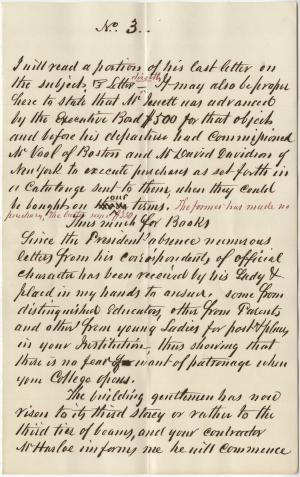 No. 3.
I will read a portion of his last letter on
the subject, Letter directly It may also be proper
here to state that Mr Jewett was advanced
by the Executive Board $500 for that object
and before his departure had Commissioned
Mr Vool of Boston and Mr David Davidson of
New York to execute purchases as set forth in
a Catalouge sent to them, when they could
be bought on our terms. The former has made no
purchases, the latter some $350
Thus much for Books
Since the Presidents absence numerous
letters from his correspondents of official
character has been received by his Lady &
place in my hands to answer. some from
distinguished Educators, other from Parents
and other from young Ladies for post & place
in your Institution, thus shewing that
there is no fear of want of patronage when
your College opens.
The building gentlemen has now
risen to its third storey or rather to the
third tier of beams, and your contractor
Mr Harloe informs me he will commence